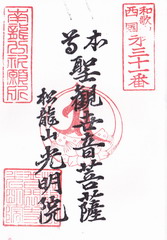 和歌山
西國
第三十一番
本尊
聖觀世音菩薩
松龍山光明院
南龍公祈願所